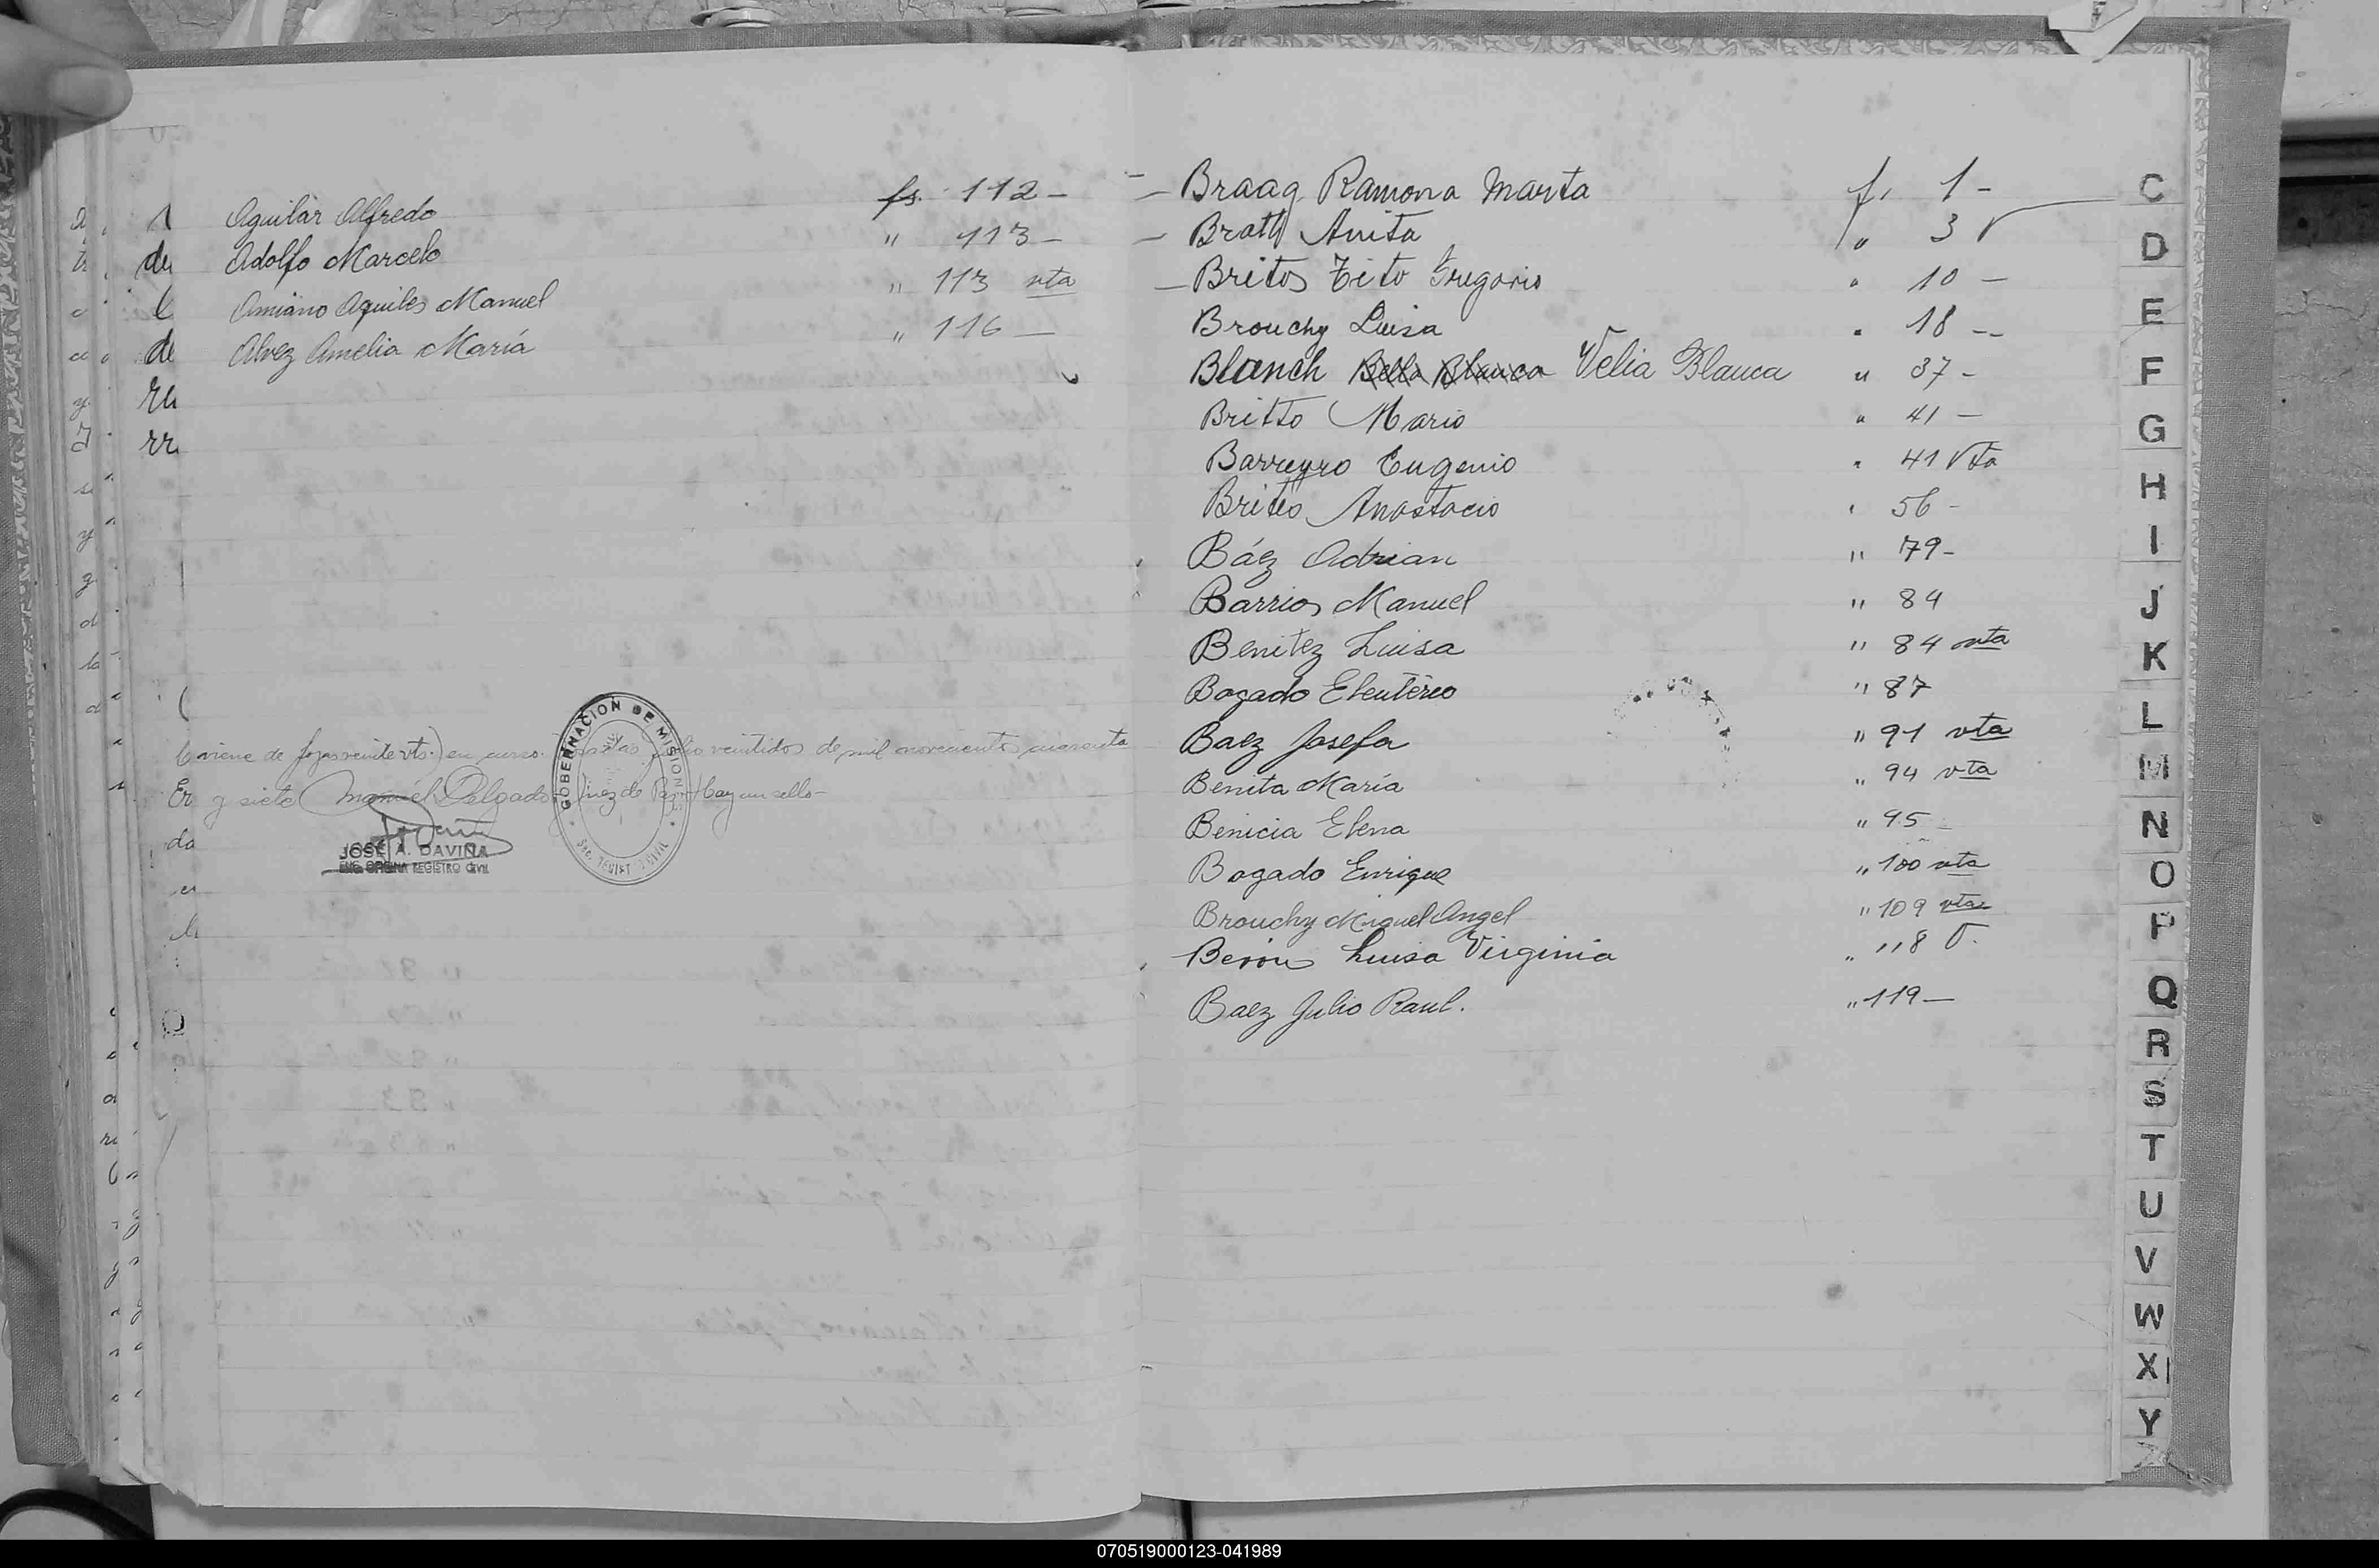 Aguilar Alfredo fs. 112 -
Adolfo Marcelo " 113 -
Amiano Aquiles Manuel " 113 vta
Alvez Amelia María " 116 -
(viene de fojas veinte vta.) en curso. Posadas julio veintidos de mil novecientos cuarenta
y siete Manuel Delgado - Juez de Paz - Hay un sello -
GOBERNACION DE MISIONES
JOSÉ A. DAVIÑA
ENC. OFICINA REGISTRO CIVIL
- Braag Ramona Marta f. 1 -
- Brath Anita " 3 v
- Britos Tito Gregorio " 10 -
Brouchy Luisa " 18 -
Blanch Bella Blanca Velia Blanca " 37 -
Britto Mario " 41 -
Barreyro Eugenio " 41 Vta
Britto Anastacio " 56 -
Báez Adrian " 79 -
Barrios Manuel " 84
Benitez Luisa " 84 vta
Bogado Eleuterio " 87
Baez Josefa " 91 vta
Benita María " 94 vta
Benicia Elena " 95 -
Bogado Enrique " 100 vta
Brouchy Miguel Angel " 109 vta
Luisa Virginia " 118 V.
Baez Julio Raul. " 119 -
C
D
E
F
G
H
I
J
K
L
M
N
O
P
Q
R
S
T
U
V
W
X
Y
070519000123-041989